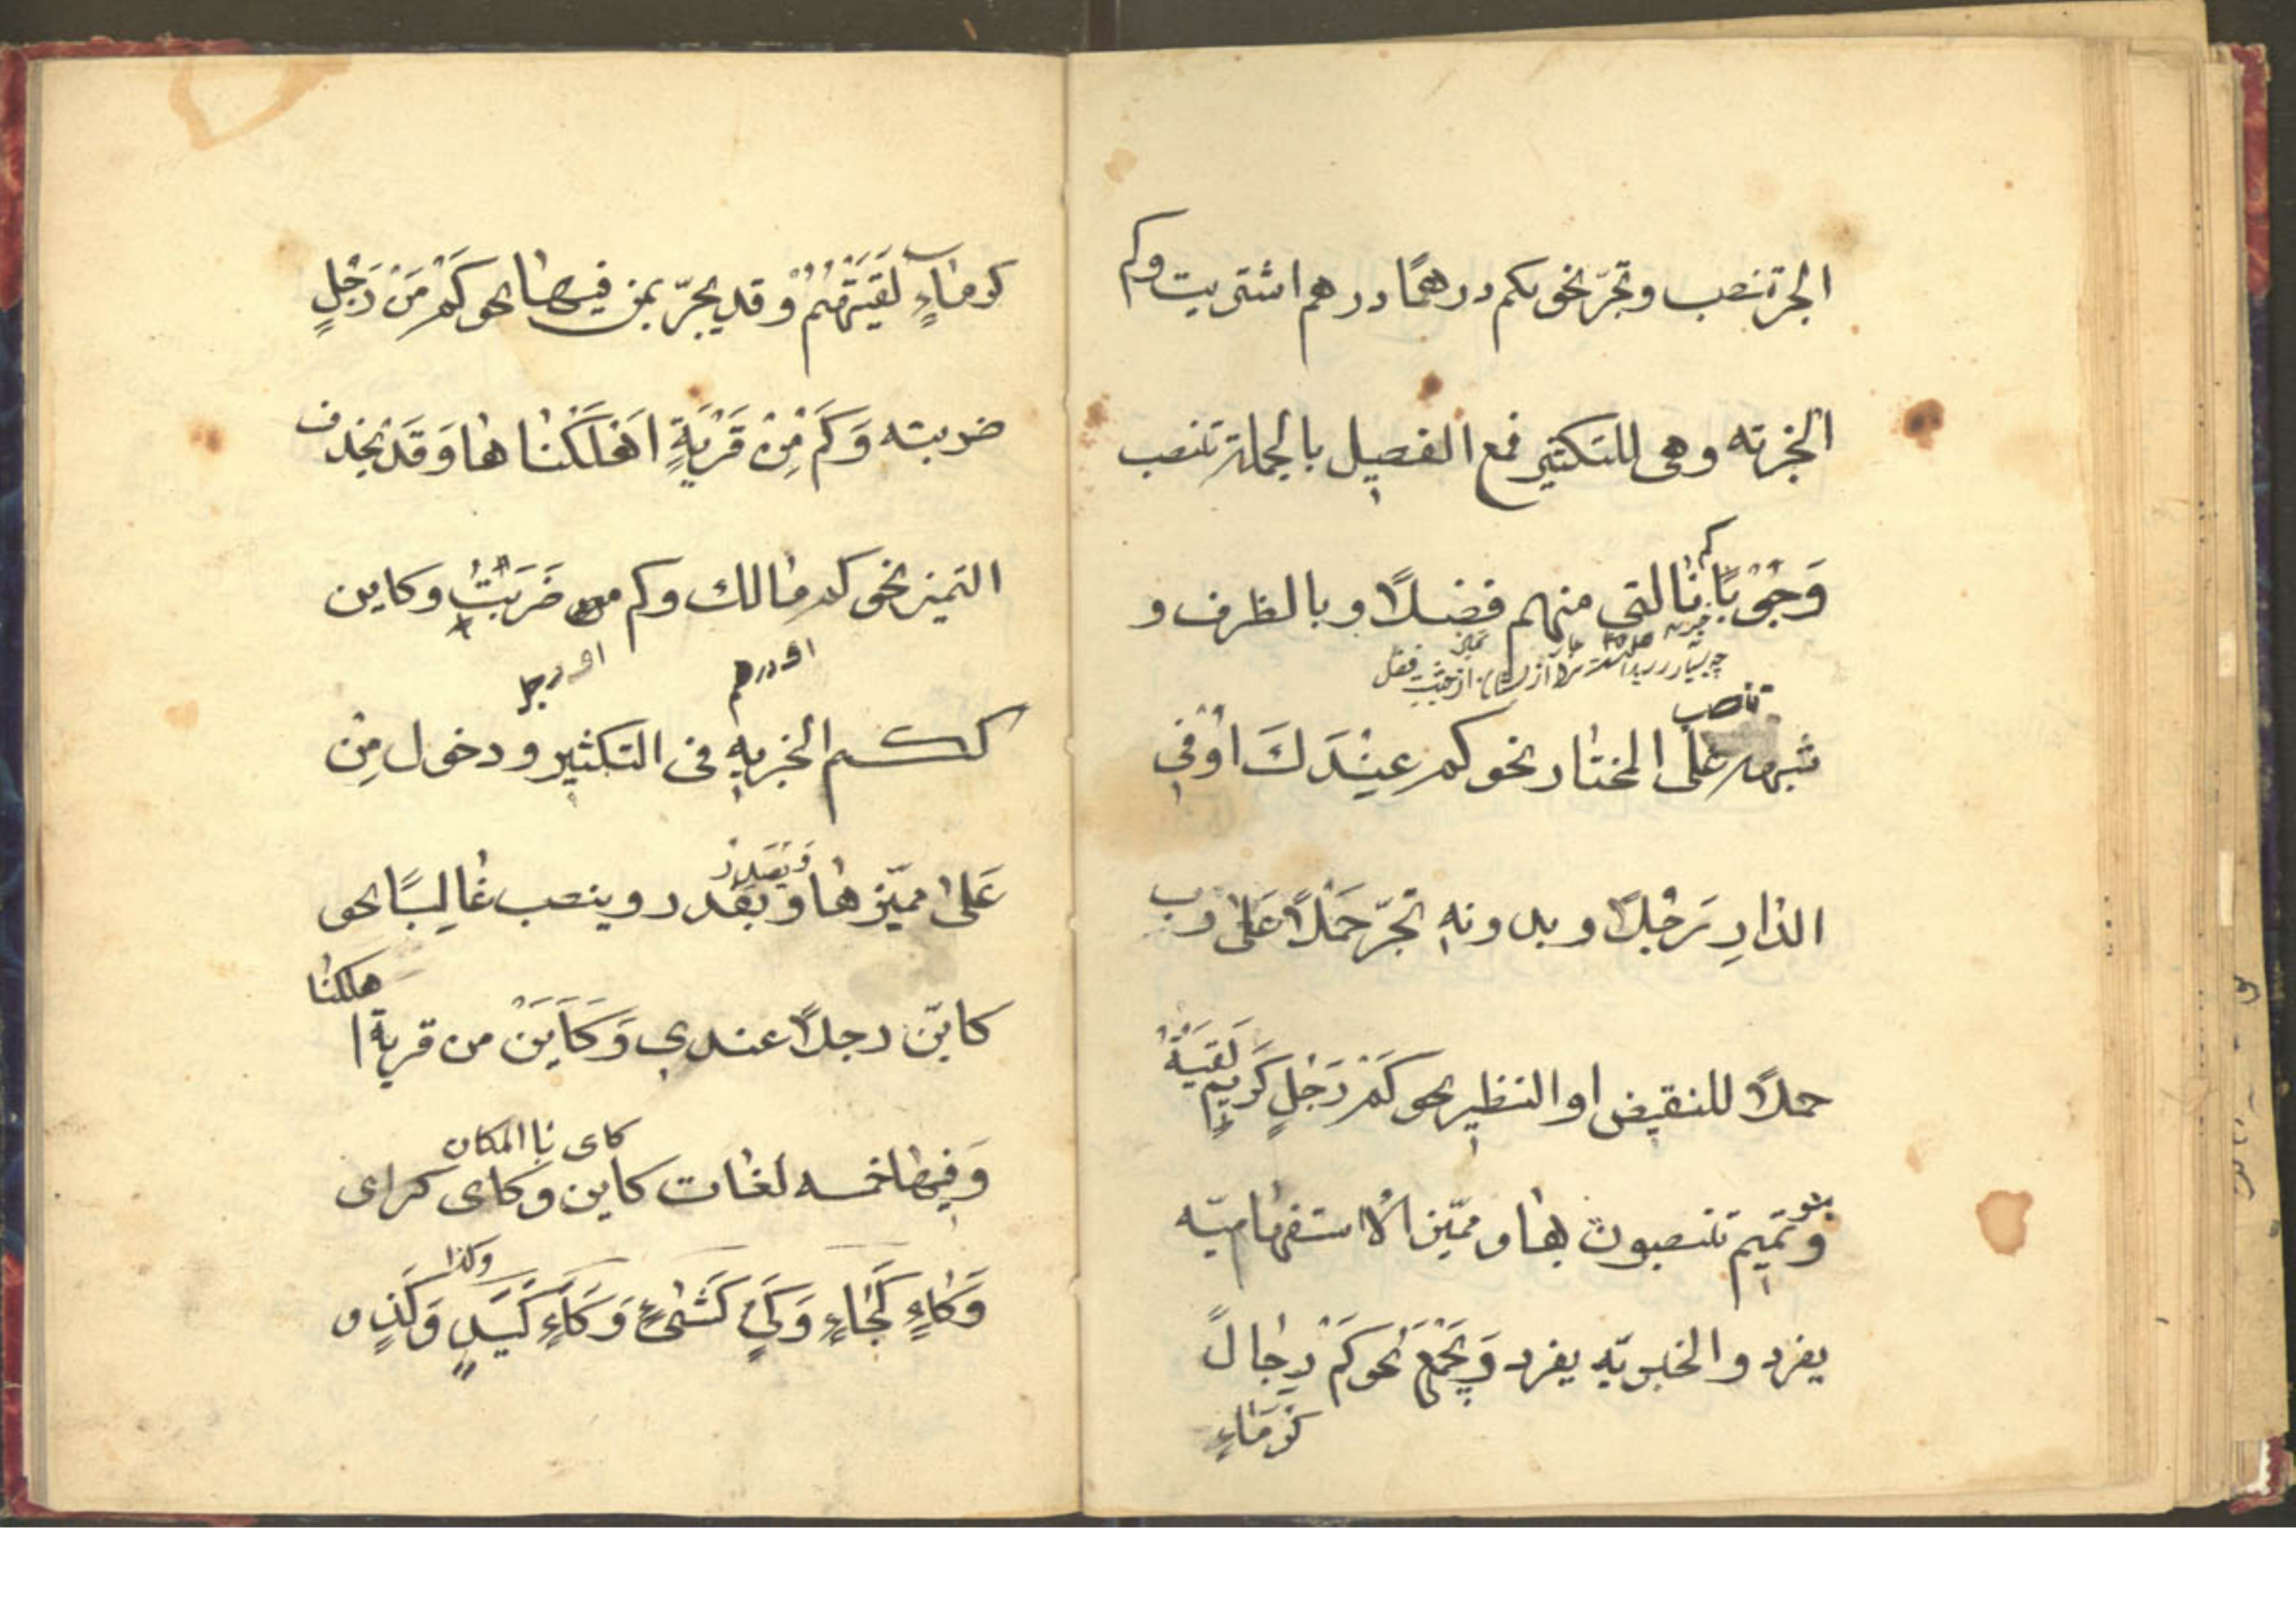 الجر تنصب وتجرّ نحو بكم درهمًا درهم اشتريت وكم
الخبرته وهى للتكثير فمع الفصيل بالجملة تنصب
وَجُوْبًا نالنى منهم فضلًا و بالظرف و
كم
تنصب
شبهه على المختار نحو كم عِنْدَكَ اوْفي
الدارِ رَجُلًا و بدونهِ تجرّ حَمْلًا عَلى رب
حملًا للنقيض او النظير نحو كَمْ رَجُلٍ كَرِيمٍ لَقيتَهُ
بنو
وتَمِيم تنصبون بها و مميّز الاستفهاميّه
يفرد و الخبريّه يفرد وَيجْمَع نَحو كَمْ رِجالً
كرَمَاءٍ
كرماءٍ لَقيتَهُمْ وقد يجرّ بمن فيها نحو كَمْ مَنْ رَجُلٍ
ضربته وَكَمْ مِنْ قَرْيَةٍ اَهْلَكْنا ها وَقَدْ يحذف
التميز نحو كم مالك وكم ضَرَبْتُ وكاين
او درهم
او رجل
ككم الخبريهِ فى التكثير و دخول مِنْ
عَلى مميّزها و بقدر و ينصب غالِبًا نحو
كايّن رجلًا عندي وَكَاَيَنْ من قرية ا
هلكنا
وَفِيها خمسه لغات كاين وكاى
كاى
وَكاءٍ كَجَاءٍ وَكَيٍ كَشَىْءٍ وَكَاَءٍ وَكَذٍ و
وكذا